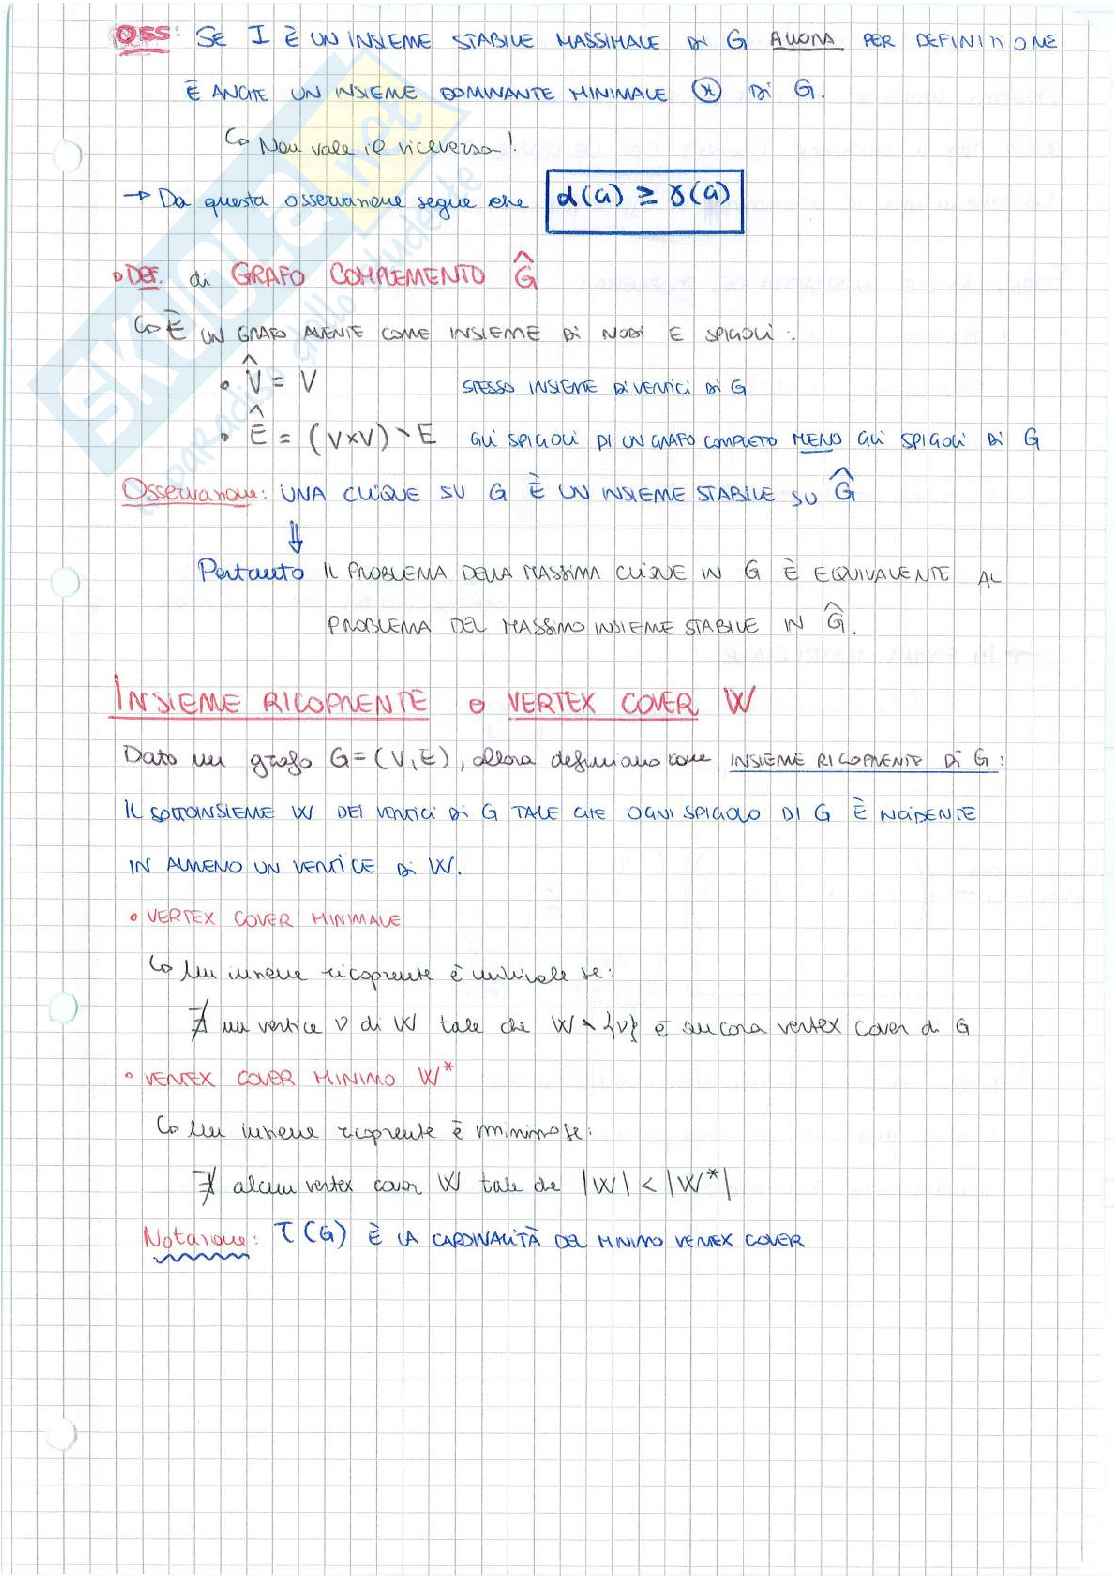 OSS: SE I È UN INSIEME STABILE MASSIMALE DI G ALLORA PER DEFINIZIONE
È ANCHE UN INSIEME DOMINANTE MINIMALE (*) DI G.
↳ Non vale il viceversa!
→ Da questa osservazione segue che α(G) ≥ γ(G)
• DEF. di GRAFO COMPLEMENTO Ĝ
↳ È UN GRAFO AVENTE COME INSIEME DI NODI E SPIGOLI:
• V̂ = V STESSO INSIEME DI VERTICI DI G
• Ê = (V×V) \ E GLI SPIGOLI DI UN GRAFO COMPLETO MENO GLI SPIGOLI DI G
Osservazione: UNA CLIQUE SU G È UN INSIEME STABILE SU Ĝ
⇓
Pertanto IL PROBLEMA DELLA MASSIMA CLIQUE IN G È EQUIVALENTE AL
PROBLEMA DEL MASSIMO INSIEME STABILE IN Ĝ.
INSIEME RICOPRENTE o VERTEX COVER W
Dato un grafo G=(V,E), allora definiamo come INSIEME RICOPRENTE DI G:
IL SOTTOINSIEME W DEI VERTICI DI G TALE CHE OGNI SPIGOLO DI G È INCIDENTE
IN ALMENO UN VERTICE DI W.
• VERTEX COVER MINIMALE
↳ Un insieme ricoprente è minimale se:
∄ un vertice v di W tale che W \ {v} è ancora vertex cover di G
• VERTEX COVER MINIMO W*
↳ Un insieme ricoprente è minimo se:
∄ alcun vertex cover W tale che |W| < |W*|
Notazione: τ(G) È LA CARDINALITÀ DEL MINIMO VERTEX COVER
SKUOLA.net